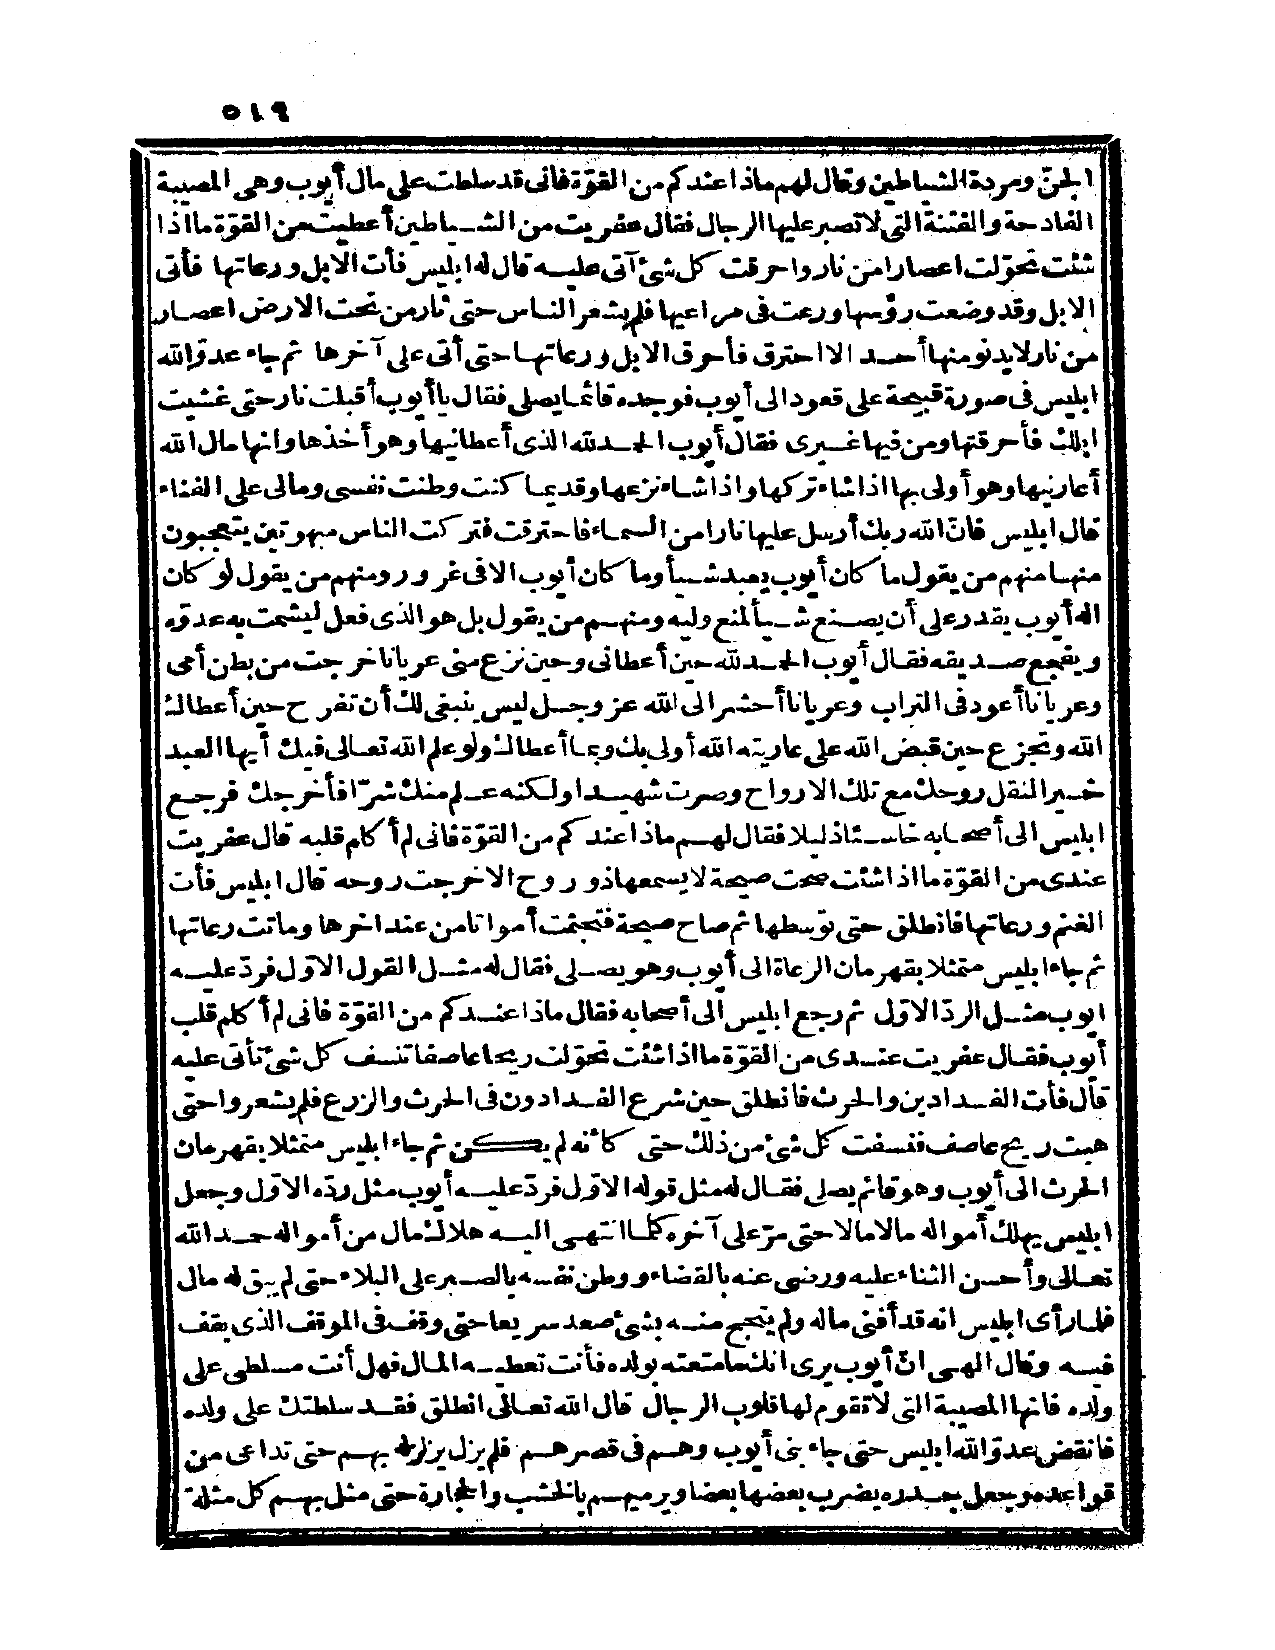 ٥١٩
الجنّ ومردة الشياطين وقال لهم ماذا عندكم من القوّة فانى قد سلطت على مال أيوب وهى المصيبة
الفادحة والفتنة التى لا تصبر عليها الرجال فقال عفريت من الشياطين أعطيت من القوّة ما اذا
شئت تحوّلت اعصارا من نار واحرقت كل شئ آتى عليه قال له ابليس فأت الابل ورعاتها فأتى
الابل وقد وضعت رؤسها ورعت فى مراعيها فلم يشعر الناس حتى ثار من تحت الارض اعصار
من نار لا يدنو منها أحد الا احترق فأحرق الابل ورعاتها حتى أتى على آخرها ثم جاء عدوّ الله
ابليس فى صورة قبيحة على قعود الى أيوب فوجده قائما يصلى فقال يا أيوب أقبلت نار حتى غشيت
ابلك فأحرقتها ومن فيها غيرى فقال أيوب الحمد لله الذى أعطانيها وهو أخذها وانها مال الله
أعارنيها وهو أولى بها اذا شاء تركها واذا شاء نزعها وقديما كنت وطنت نفسى ومالى على الفناء
قال ابليس فانّ الله ربك أرسل عليها نارا من السماء فاحترقت فتركت الناس مبهوتين يتعجبون
منها منهم من يقول ما كان أيوب يعبد شيأ وما كان أيوب الا فى غرور ومنهم من يقول لو كان
اله أيوب يقدر على أن يصنع شيأ لمنع وليه ومنهم من يقول بل هو الذى فعل ليشمت به عدوّه
ويفجع صديقه فقال أيوب الحمد لله حين أعطانى وحين نزع منى عريانا خرجت من بطن أمى
وعريانا أعود فى التراب وعريانا أحشر الى الله عز وجل ليس ينبغى لك أن تفرح حين أعطاك
الله وتجزع حين قبض الله على عاريته الله أولى بك وبما أعطاك ولو علم الله تعالى فيك أيها العبد
خيرا لنقل روحك مع تلك الارواح وصرت شهيدا ولكنه علم منك شرّا فأخرجك فرجع
ابليس الى أصحابه خاسئا ذليلا فقال لهم ماذا عندكم من القوّة فانى لم أكلم قلبه قال عفريت
عندى من القوّة ما اذا شئت صحت صيحة لا يسمعها ذو روح الا خرجت روحه قال ابليس فأت
الغنم ورعاتها فانطلق حتى توسطها ثم صاح صيحة فتجثمت أمواتا من عند آخرها وماتت رعاتها
ثم جاء ابليس متمثلا بقهرمان الرعاة الى أيوب وهو يصلى فقال له مثل القول الاوّل فردّ عليه
ايوب مثل الردّ الاوّل ثم رجع ابليس الى أصحابه فقال ماذا عندكم من القوّة فانى لم أكلم قلب
أيوب فقال عفريت عندى من القوّة ما اذا شئت تحوّلت ريحا عاصفا تنسف كل شئ تأتى عليه
قال فأت الفدادين والحرث فانطلق حين شرع الفدادون فى الحرث والزرع فلم يشعروا حتى
هبت ريح عاصف فنسفت كل شئ من ذلك حتى كأنه لم يكن ثم جاء ابليس متمثلا بقهرمان
الحرث الى أيوب وهو قائم يصلى فقال له مثل قوله الاوّل فردّ عليه أيوب مثل ردّه الاوّل وجعل
ابليس يهلك أمواله مالا مالا حتى مرّ على آخره كلما انتهى اليه هلاك مال من أمواله حمد الله
تعالى وأحسن الثناء عليه ورضى عنه بالقضاء ووطن نفسه بالصبر على البلاء حتى لم يبق له مال
فلما رأى ابليس انه قد أفنى ماله ولم ينجح منه بشئ صعد سريعا حتى وقف فى الموقف الذى يقف
فيه وقال الهى انّ أيوب يرى انك ما متعته بولده فأنت تعطيه المال فهل أنت مسلطى على
ولده فانها المصيبة التى لا تقوم لها قلوب الرجال قال الله تعالى انطلق فقد سلطتك على ولده
فانقض عدوّ الله ابليس حتى جاء بنى أيوب وهم فى قصرهم فلم يزل يزلزله بهم حتى تداعى من
قواعده وجعل جدره يضرب بعضها بعضا ويرميهم بالخشب والحجارة حتى مثل بهم كل مثلة